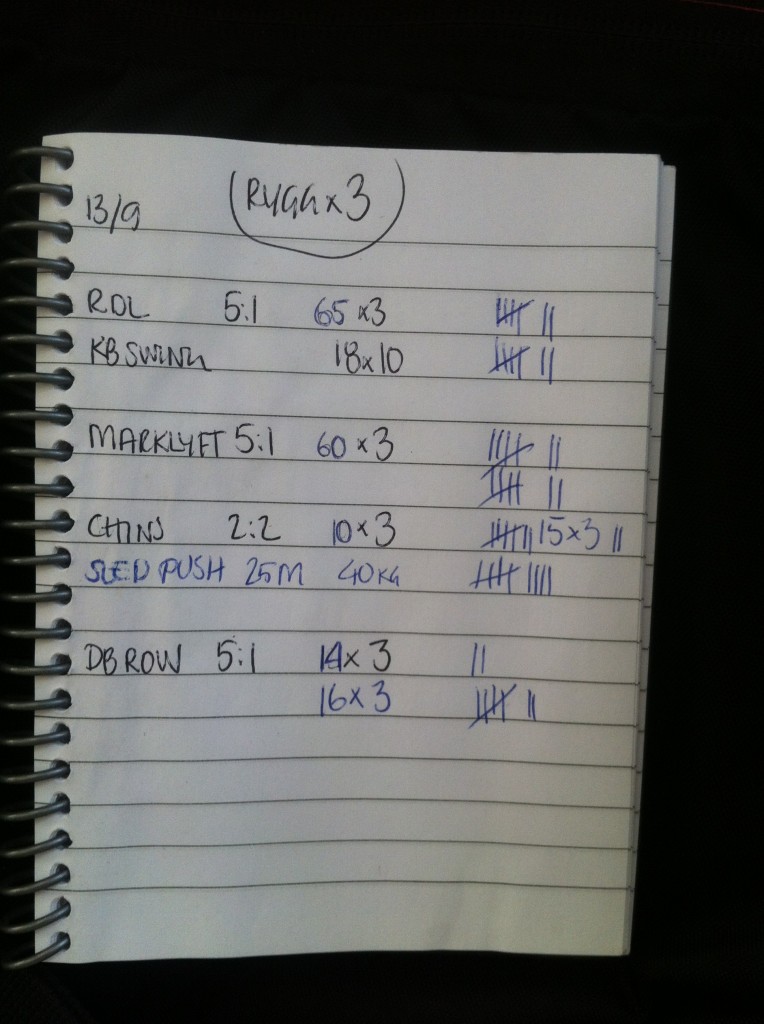 13/9 RYGG x 3
RDL 5:1 65 x 3 卌 ||
KB SWING 18 x 10 卌 ||
MARKLYFT 5:1 60 x 3 卌 ||
卌 ||
CHINS 2:2 10 x 3 卌 || 15 x 3 ||
SLED PUSH 25M 40KG 卌 ||||
DB ROW 5:1 14 x 3 ||
16 x 3 卌 ||